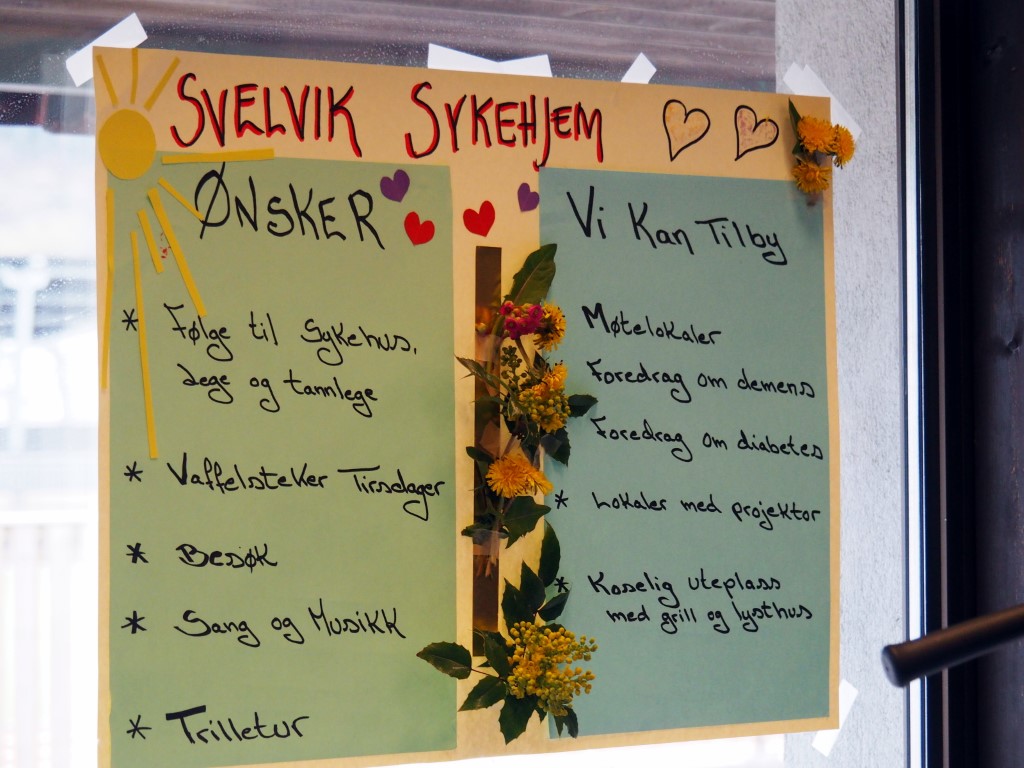 SVELVIK SYKEHJEM
ØNSKER
* Følge til Sykehus,
lege og tannlege
* Vaffelsteker Tirsdager
* Besøk
* Sang og Musikk
* Trilletur
Vi Kan Tilby
Møtelokaler
Foredrag om demens
Foredrag om diabetes
* Lokaler med projektor
* Koselig uteplass
med grill og lysthus